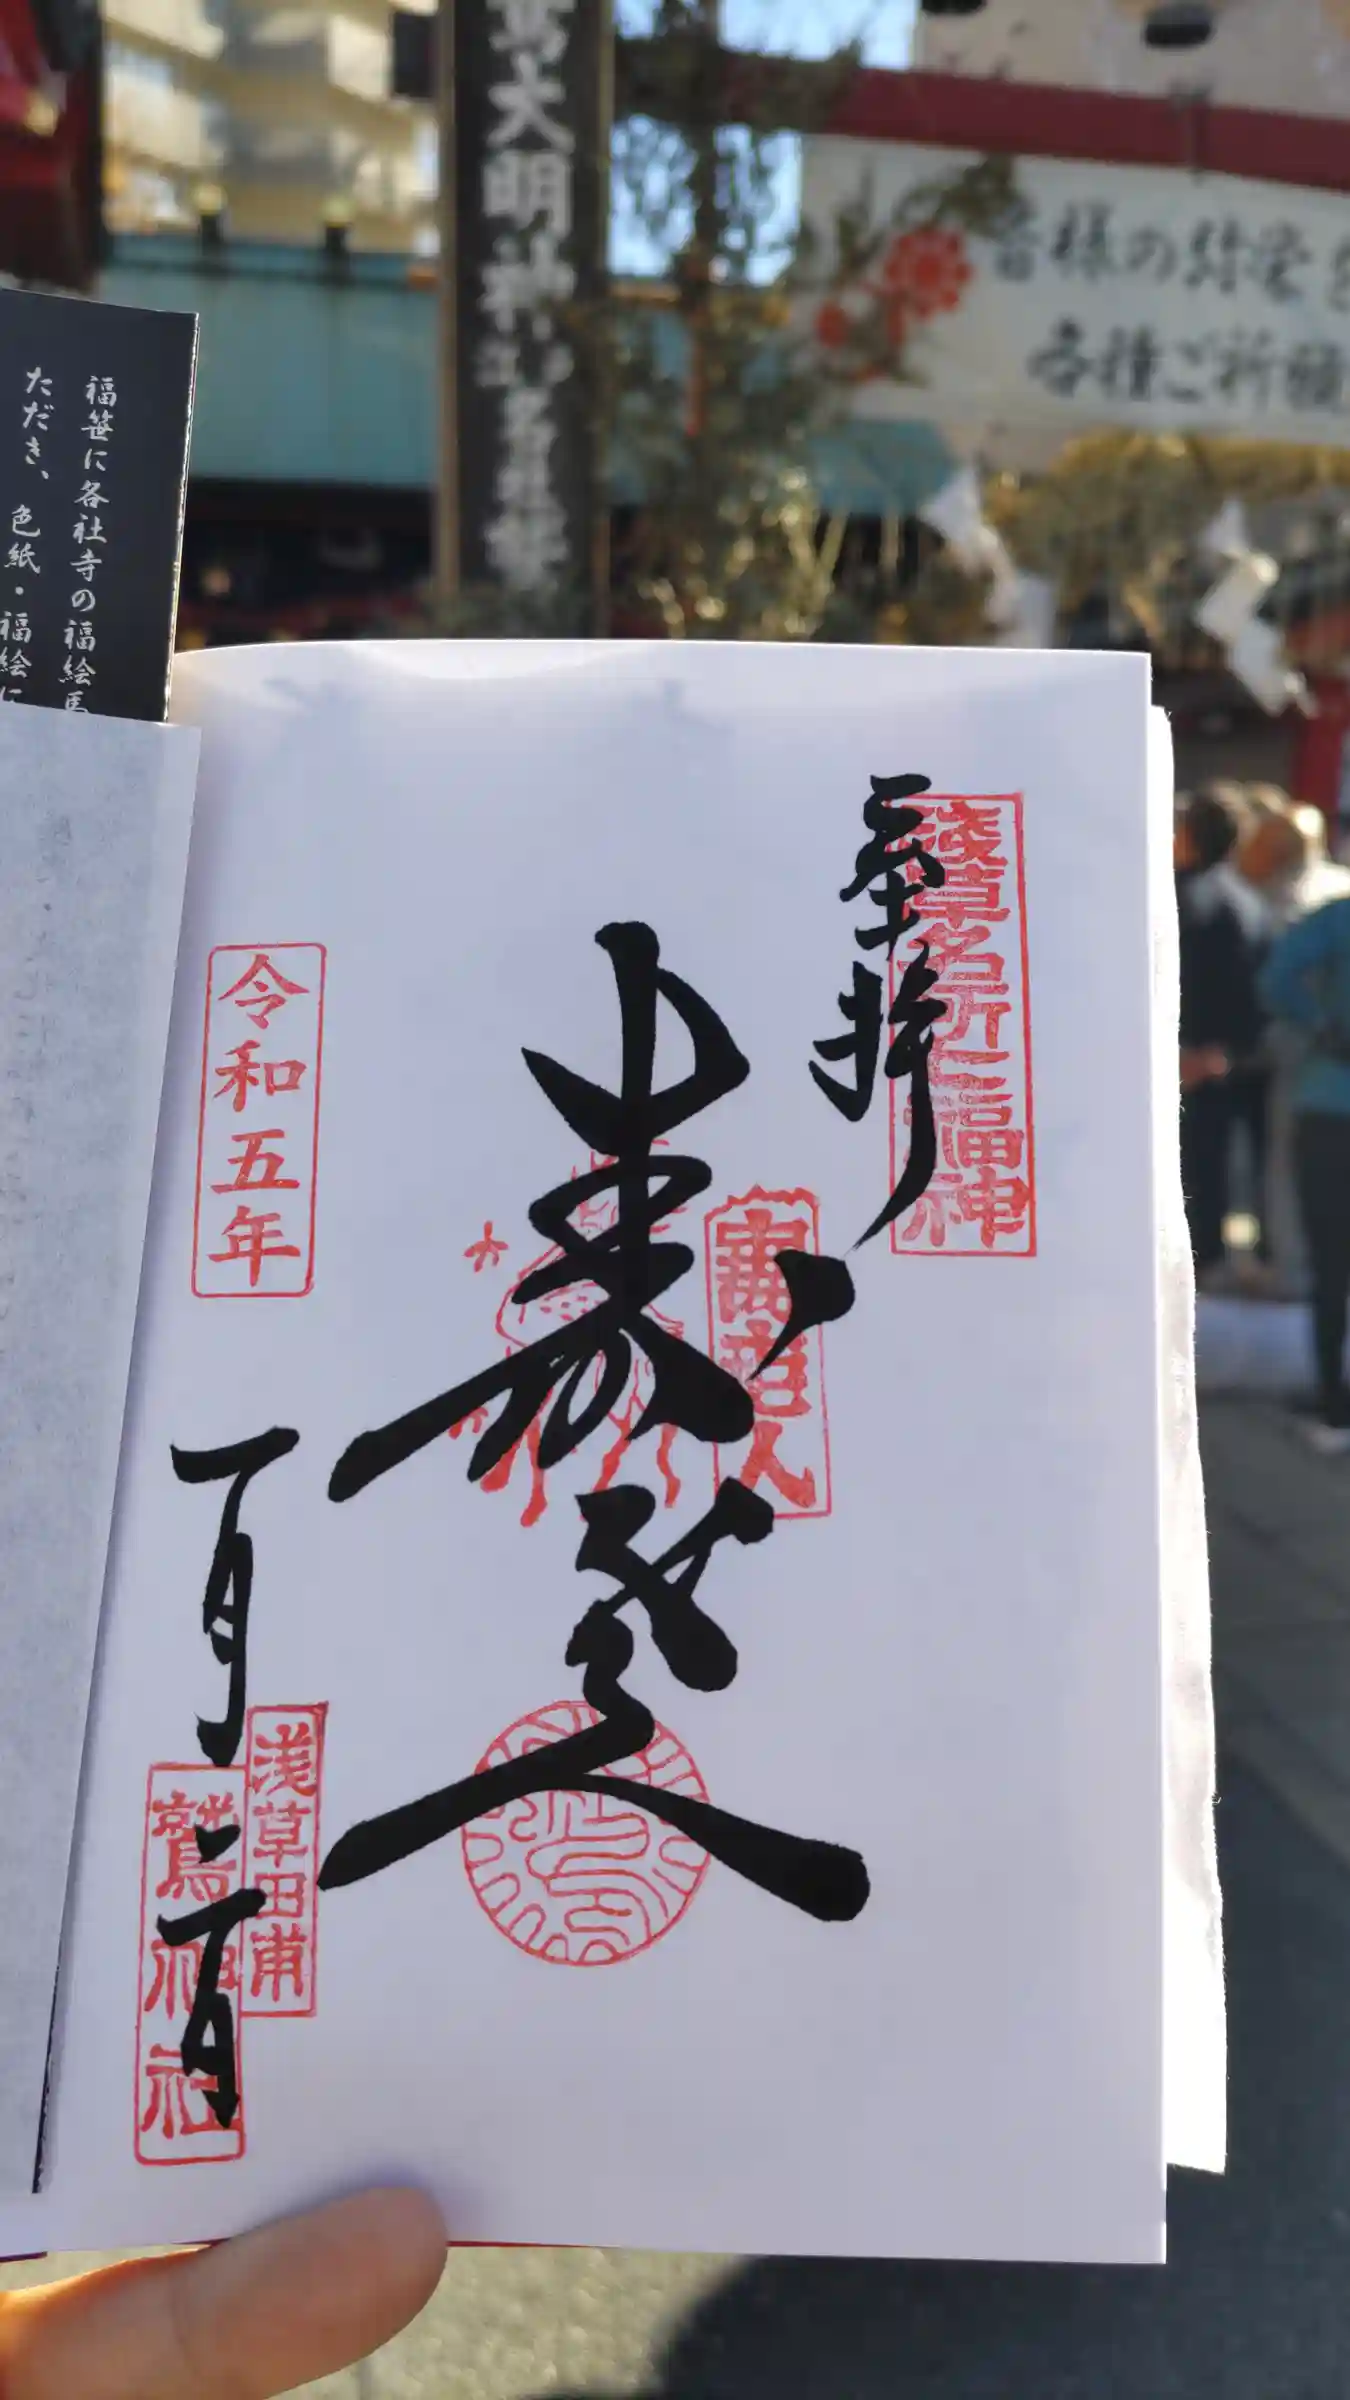 鷲大明神
皆様の弥栄を
各種ご祈願
福笹に各社寺の福絵馬
ただき、色紙・福絵に
奉拝
淺草名所七福神
壽老人
寿老人
令和五年
一月二日
浅草田甫
鷲神社